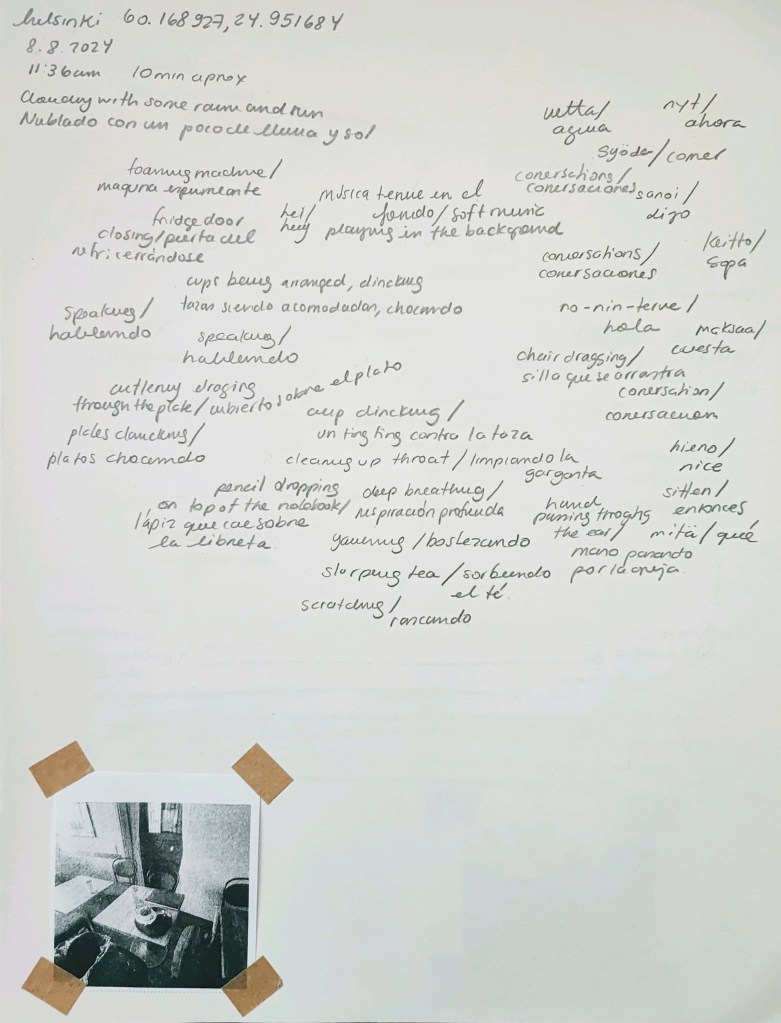 helsinki 60.168927, 24.951684
8.8.2024
11:36am 10min aprox
Cloudy with some rain and sun
Nublado con un poco de lluvia y sol
vetta/
agua
nyt/
ahora
syödä/comer
foaming machine/
maquina espumeante
música tenue en el
fondo/soft music
playing in the background
conersations/
conersaciones
sanoi/
dijo
fridge door
closing/puerta del
refri cerrándose
hei/
hey
conversations/
conersaciones
keitto/
sopa
cups being arranged, clincking
tazas siendo acomodadas, chocando
speaking/
hablando
speaking/
hablando
no-nin-terve/
hola
maksaa/
cuesta
chair dragging/
silla que se arrastra
conersation/
conersacion
cutlery droging
through the plate/cubierto sobre el plato
cup clincking/
un ting ting contra la taza
plates clancking/
platos chocando
cleaning up throat/limpiando la
garganta
hieno/
nice
pencil dropping
on top of the notebook/
lápiz que cae sobre
la libreta.
deep breathing/
respiración profunda
hand
passing throghg
the ear/
mano pasando
por la oreja.
sitten/
entonces
mitä/qué
yawning/bostezando
slorping tea/sorbiendo
el té.
scratching/
rascando